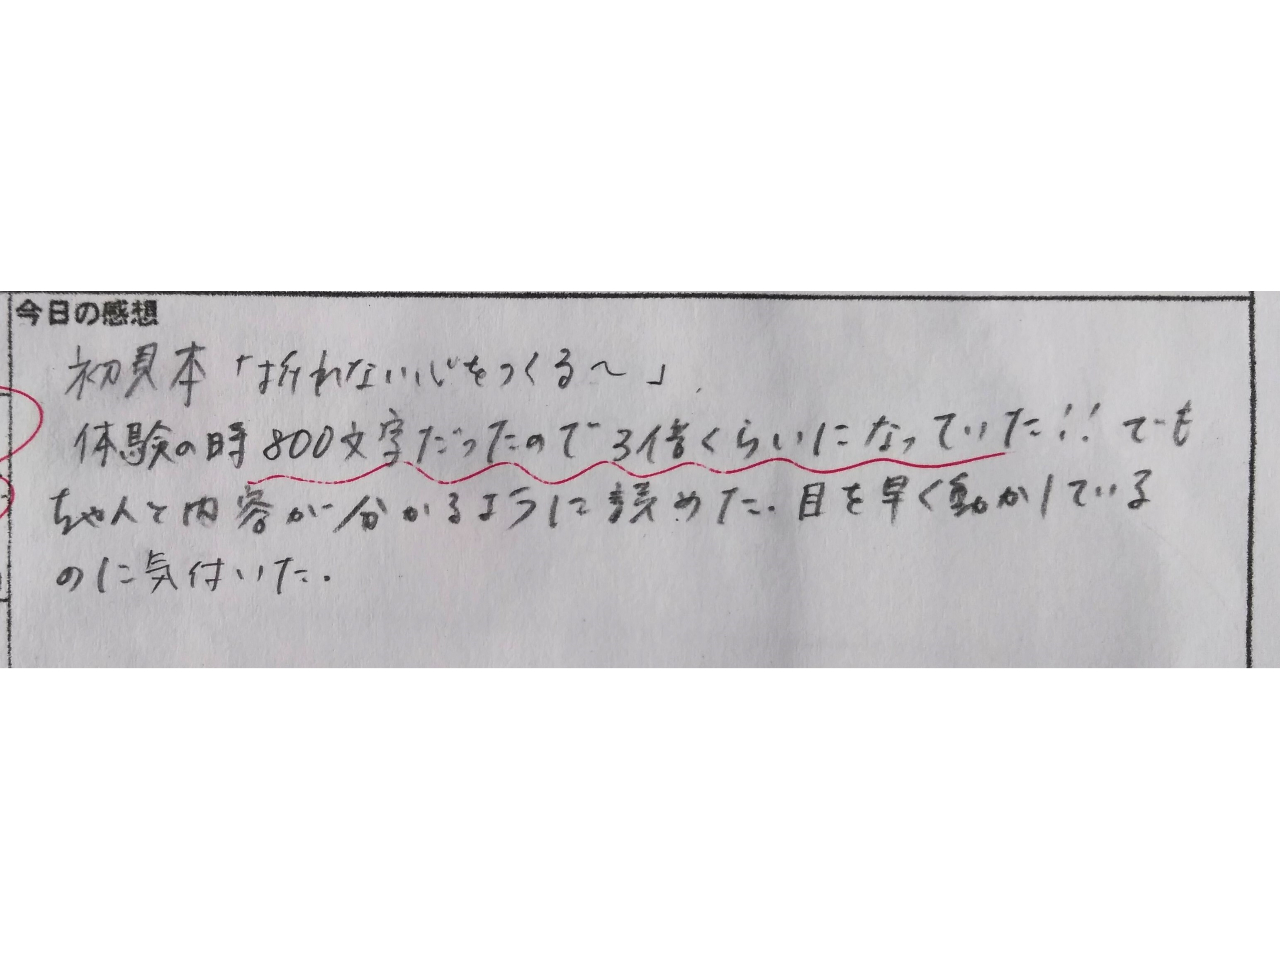 今日の感想
初見本「折れない心をつくる～」
体験の時800文字だったので3倍くらいになっていた!! でも
ちゃんと内容が分かるように読めた. 目を早く動かしている
のに気付いた.